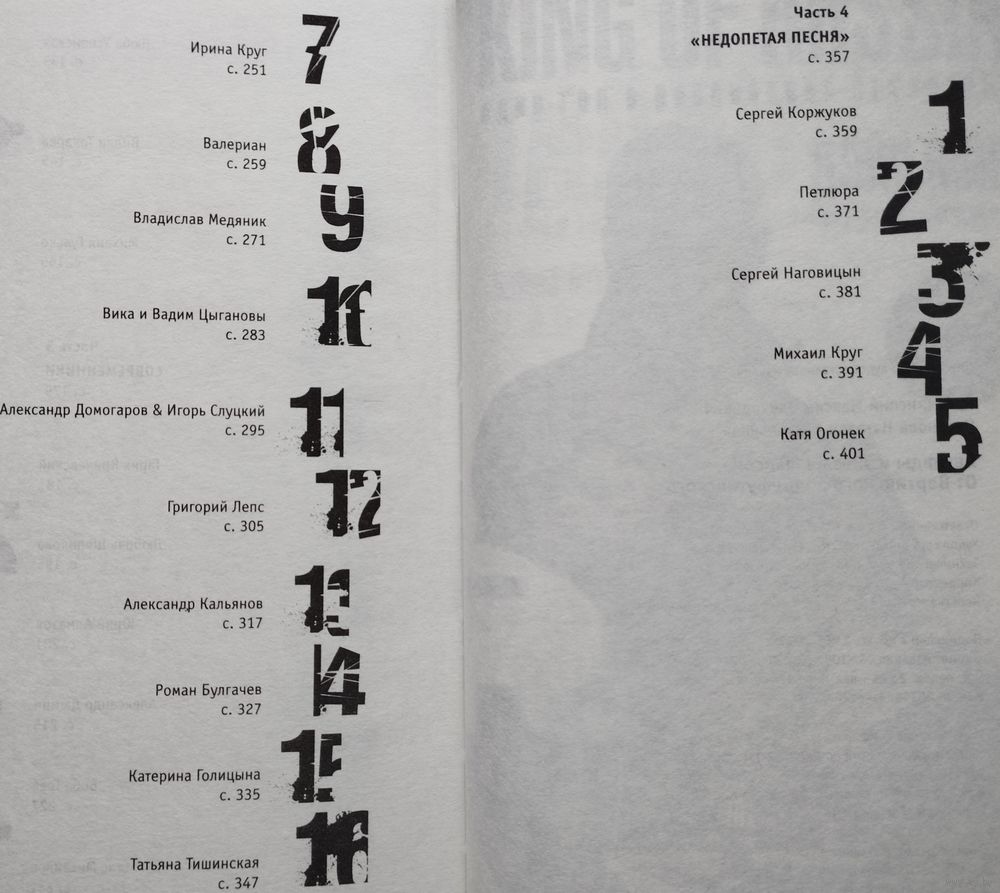 Ирина Круг
с. 251
7
Валериан
с. 259
8
Владислав Медяник
с. 271
9
Вика и Вадим Цыгановы
с. 283
10
Александр Домогаров & Игорь Слуцкий
с. 295
11
Григорий Лепс
с. 305
12
Александр Кальянов
с. 317
13
Роман Булгачев
с. 327
14
Катерина Голицына
с. 335
15
Татьяна Тишинская
с. 347
16
Часть 4
«НЕДОПЕТАЯ ПЕСНЯ»
с. 357
Сергей Коржуков
с. 359
1
Петлюра
с. 371
2
Сергей Наговицын
с. 381
3
Михаил Круг
с. 391
4
Катя Огонек
с. 401
5